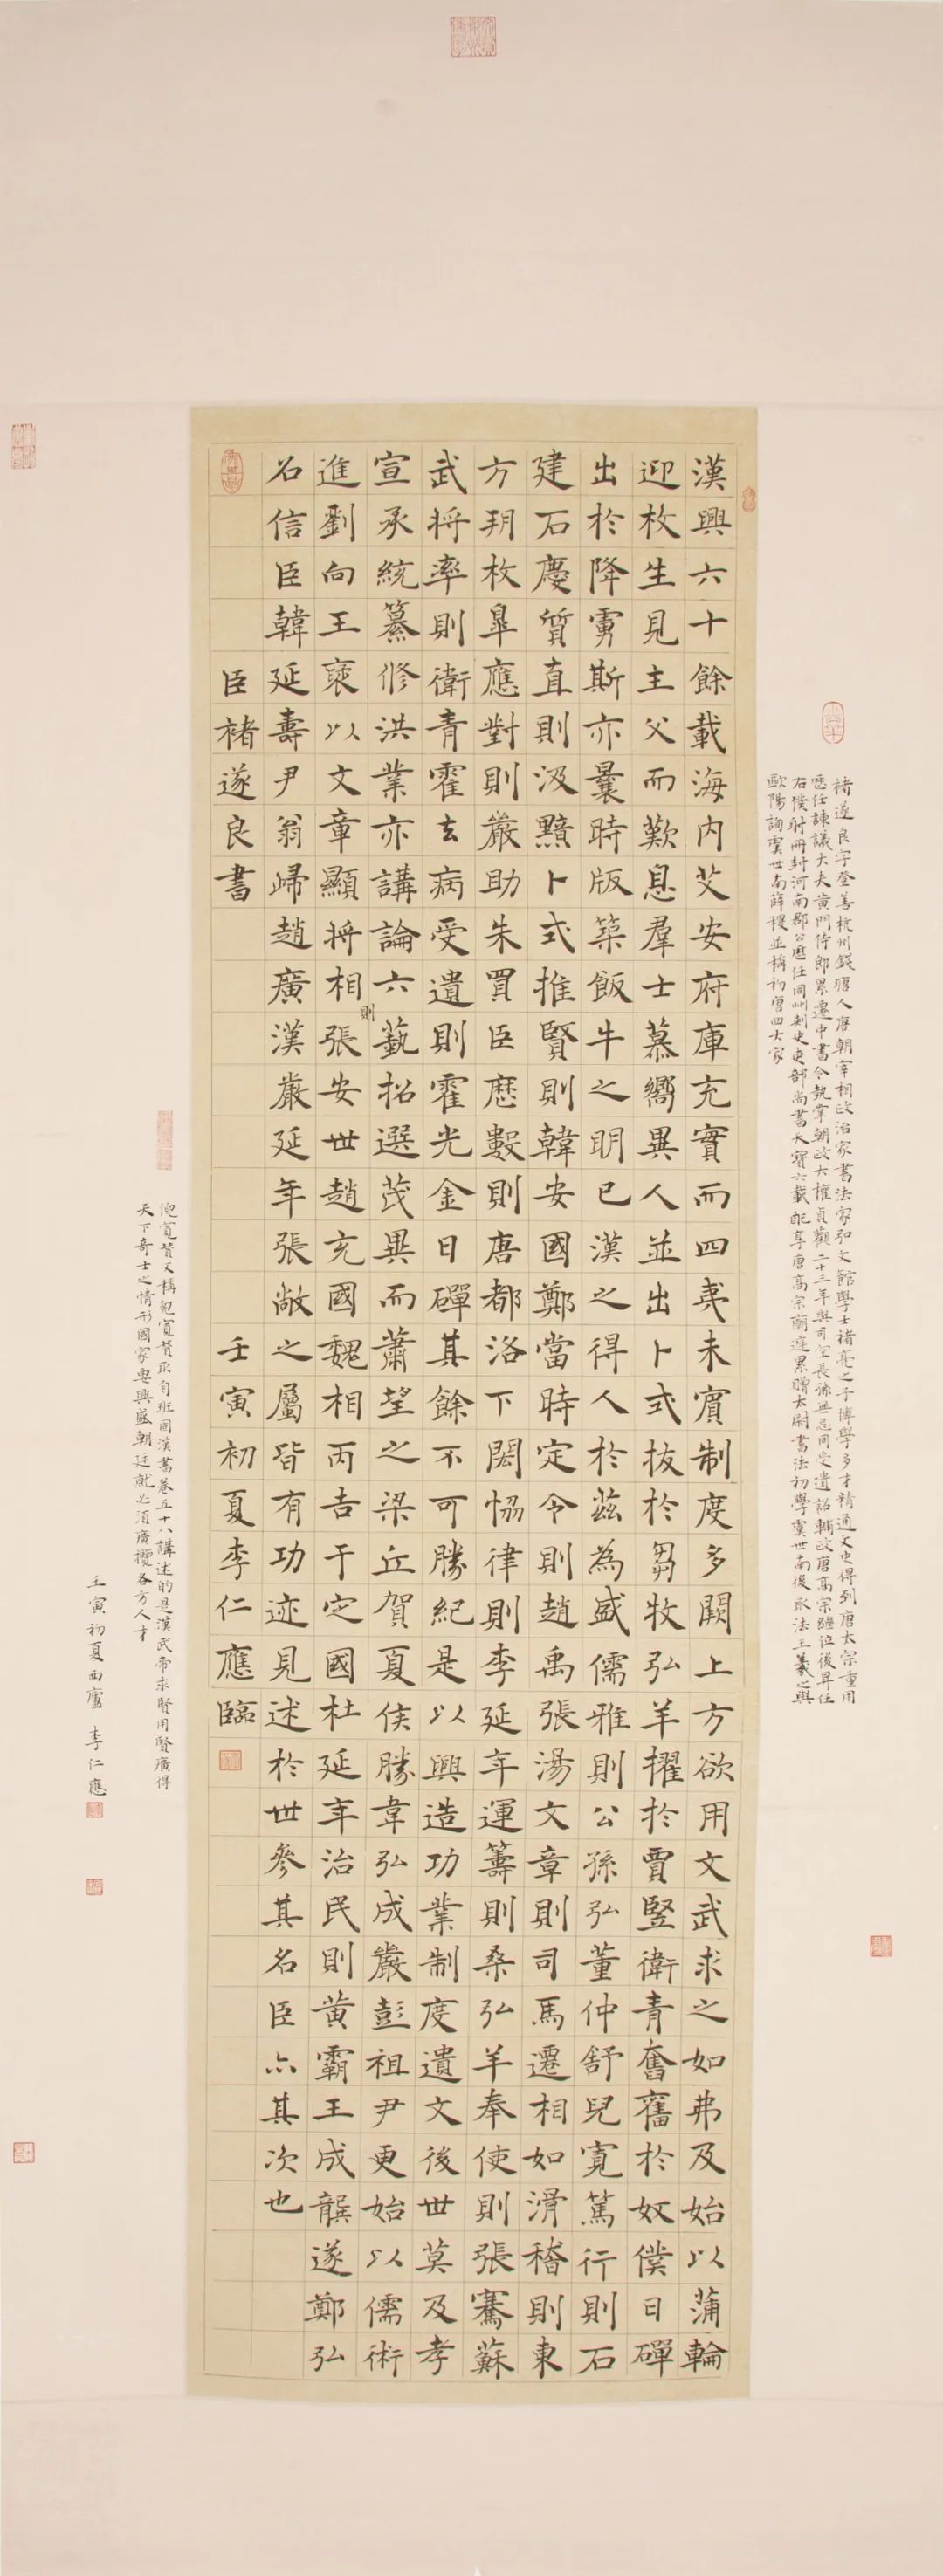 漢興六十餘載海內艾安府庫充實而四夷未賓制度多闕上方欲用文武求之如弗及始以蒲輪
迎枚生見主父而歎息羣士慕嚮異人並出卜式拔於芻牧弘羊擢於賈豎衛青奮舊於奴僕日磾
出於降虜斯亦曩時版築飯牛之明已漢之得人於茲為盛儒雅則公孫弘董仲舒兒寬篤行則石
建石慶質直則汲黯卜式推賢則韓安國鄭當時定令則趙禹張湯文章則司馬遷相如滑稽則東
方朔枚皐應對則嚴助朱買臣歷數則唐都洛下閎恊律則李延年運籌則桑弘羊奉使則張騫蘇
武將率則衛青霍去病受遺則霍光金日磾其餘不可勝紀是以興造功業制度遺文後世莫及孝
宣承統纂修洪業亦講論六藝招選茂異而蕭望之梁丘賀夏侯勝韋弘成嚴彭祖尹更始以儒術
進劉向王褒以文章顯將相張安世趙充國魏相丙吉于定國杜延年治民則黃霸王成龔遂鄭弘
則
召信臣韓延壽尹翁歸趙廣漢嚴延年張敞之屬皆有功迹見述於世參其名臣亦其次也
臣褚遂良書
壬寅初夏李仁應臨
褚遂良字登善杭州錢塘人唐朝宰相政治家書法家弘文館學士褚亮之子博學多才精通文史得到唐太宗重用
歷任諫議大夫黃門侍郎累遷中書令執掌朝政大權貞觀二十三年與司空長孫無忌同受遺詔輔政唐高宗繼位後昇任
右僕射冊封河南郡公歷任同州刺史吏部尚書天寶六載配享唐高宗廟庭累贈太尉書法初學虞世南後取法王羲之與
歐陽詢虞世南薛稷並稱初唐四大家
倪寬贊又稱兒寬贊取自班固漢書卷五十八講述的是漢武帝求賢用賢廣得
天下奇士之情形國家要興盛朝廷就必須廣攬各方人才
壬寅初夏西廬 李仁應